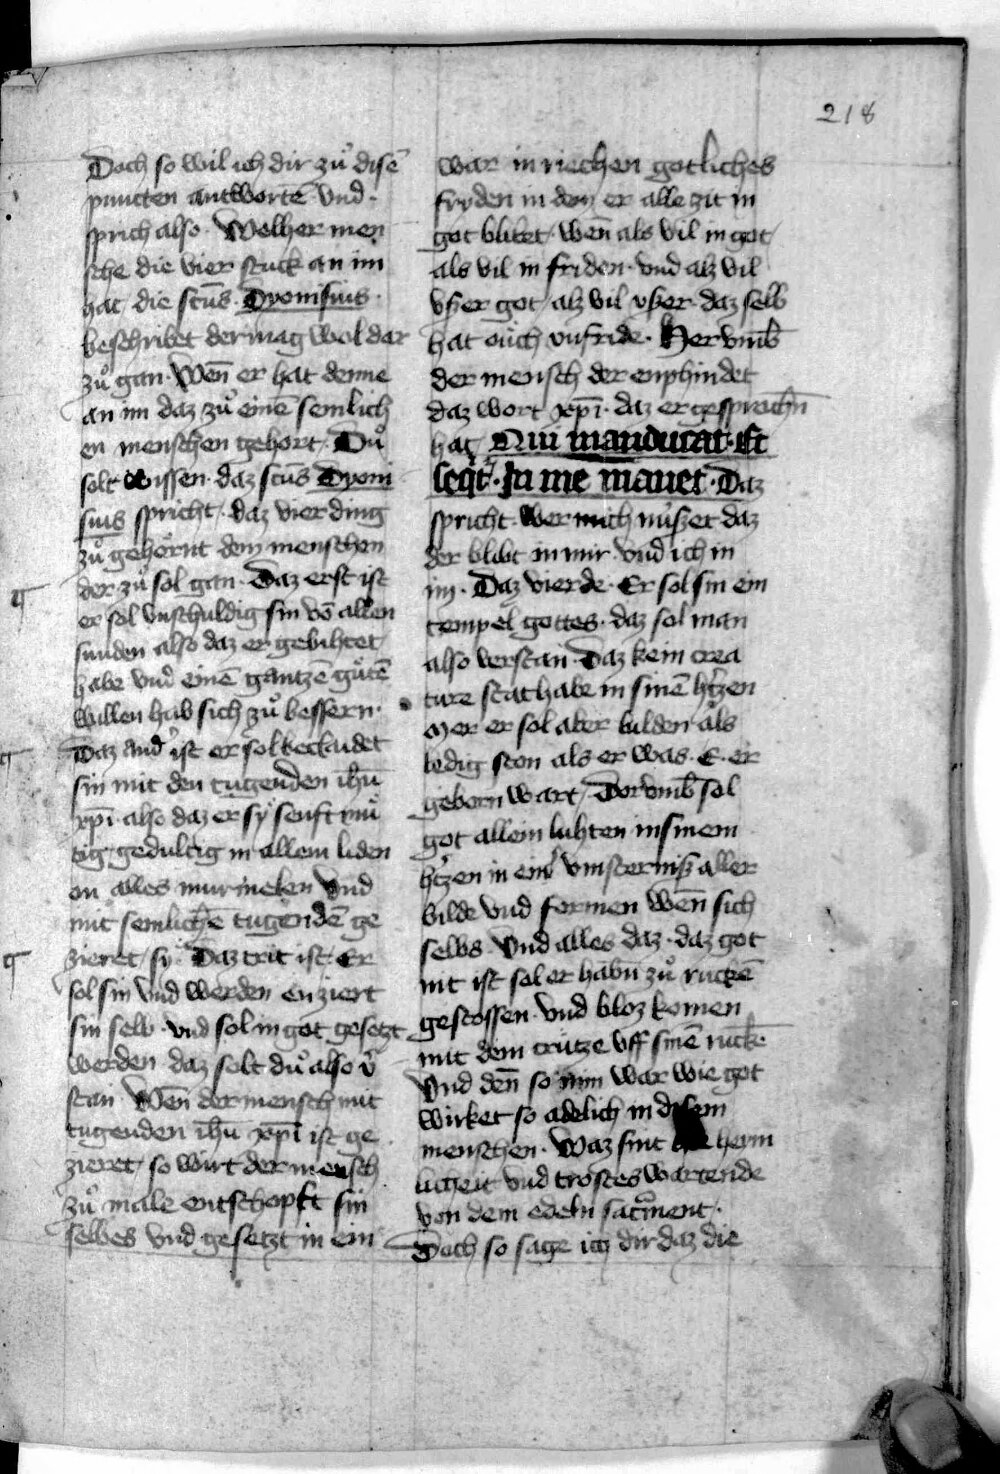 218
Doch so wil ich dir zuͦ disē
puncten antwortē vnd ·
sprich also · Welher men
sche die vier stuck an im
hat / die scūs · Dyonisius ·
beschribet der mag wol dar
zuͦ gan · Wen̄ er hat denne
an im daz zuͦ einē semlich
en menschen gehort · Duͦ
solt wissen · daz scūs Dyoni
sius spricht / daz vier ding
zuͦ gehoͤrnt dem menschen
der zuͦ sol gan · Daz erst ist
er sol vnschuldig sin vō allen
sunden also daz er gebihtet
habe vnd einē gantzē guͦtē
willen hab sich zuͦ bessern ·
Daz and' ist er sol beclaidet
sin mit den tugenden ih̄u
xp̄i · also daz er sy senft muͤ
tig gedultig in allem liden
on alles murmelen vnd
mit semlichē tugendē ge
zieret / sy · Daz trit ist · Er
sol sin vnd werden enziert
sin selb · vnd sol in got gesetzt
werden daz solt duͦ also v'
stan · Wen̄ der mensch mit
tugenden ih̄u xp̄i ist ge
zieret / so wirt der mensch
zuͦ male entschopft sin
selbes vnd gesetzt in ein
war in riechen gotliches
fryden in dem er alle zit in
got blibet / wen̄ als vil in got /
als vil in friden · vnd alz vil
vsser got / alz vil vsser · daz selb
hat ouch vnfride · Her vmb
der mensch der enphindet
daz wort xp̄i · daz er gesprochn̄
hat / Qui manducat · Et
seqt' · In me manet · Daz
spricht · wer mich nuͤsset daz
der blibt in mir vnd ich in
im · Daz vierde · Er sol sin ein
tempel gottes · daz sol man
also verstan · Daz kein crea
ture stat habe in sinē h'tzen
Mer er sol aber bilden als
ledig ston als er was · E · er
geborn wart / Dor vmb sol
got allein luhten in sinem
h'tzen in ein' vinsternisz aller
bilde vnd formen wen̄ sich
selbs · Vnd alles daz · daz got
nit ist sol er habn zuͦ ruckē
gestossen · vnd bloz komen
mit dem crutze vff sinē rucke
Vnd den̄ so nim war wie got
wirket so adelich in disem
menschen · Waz sint herin
licheit vnd trostes wartende
von dem edeln sacrment ·
Doch so sage ich dir daz die